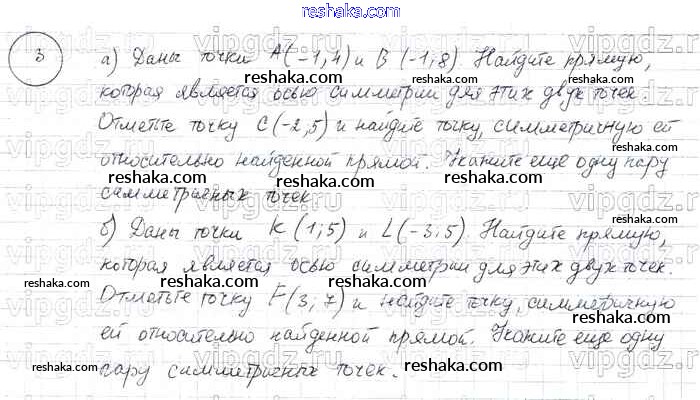 reshaka.com
3
а) Даны точки A(-1,4) и B(-1,8). Найдите прямую,
reshaka.com reshaka.com
которая является осью симметрии для этих двух точек.
reshaka.com
Отметьте точку C(-2,5) и найдите точку, симметричную ей
относительно найденной прямой. Укажите еще одну пару
reshaka.com reshaka.com
симметричных точек
reshaka.com
б) Даны точки K(1;5) и L(-3;5). Найдите прямую,
reshaka.com reshaka.com
которая является осью симметрии для этих двух точек.
reshaka.com reshaka.com
Отметьте точку F(3;7) и найдите точку, симметричную
ей относительно найденной прямой. Укажите еще одну
reshaka.com
reshaka.com
пару симметричных точек.
reshaka.com